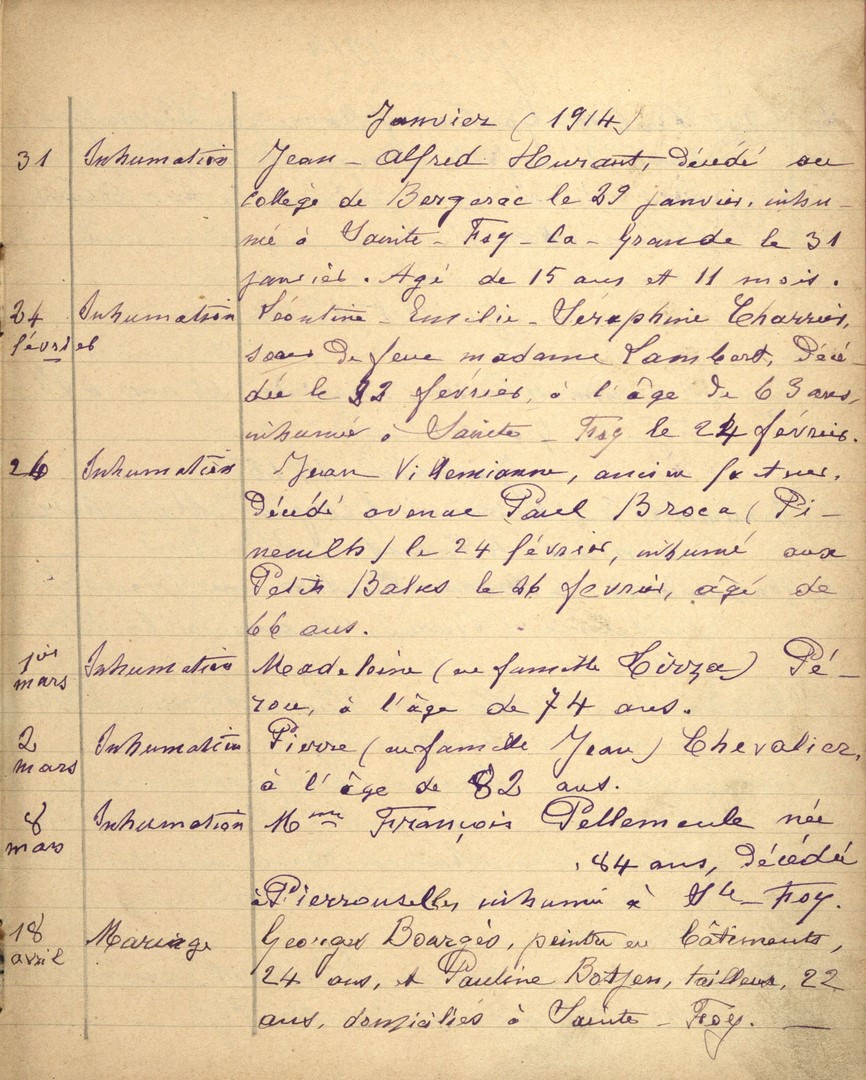 Janvier (1914)
31 Inhumation Jean-Alfred Hurant, décédé au
collège de Bergerac le 29 janvier, inhu-
mé à Sainte-Foy-la-Grande le 31
janvier. Agé de 15 ans et 11 mois.
24 Inhumation Léontine-Emilie-Séraphine Charrier,
février soeur de feue madame Lambert, décé-
dée le 22 février, à l'âge de 63 ans,
inhumée à Sainte-Foy le 24 février.
26 Inhumation Jean Villemianne, ancien facteur.
Décédé avenue Paul Broca (Pi-
neuilh) le 24 février, inhumé aux
Petits Balus le 26 fevrier, âgé de
66 ans.
1er Inhumation Madeleine (en famille Tirza) Pé-
mars rou, à l'âge de 74 ans.
2 Inhumation Pierre (en famille Jean) Chevalier,
mars à l'âge de 82 ans.
8 Inhumation Mme François Pellemeule née
mars 84 ans, décédée
à Pierrouselles inhumé à Ste-Foy.
18 Mariage Georges Bourgès, peintre en bâtiments,
avril 24 ans, et Pauline Botjen, tailleur, 22
ans, domiciliés à Sainte-Foy. —